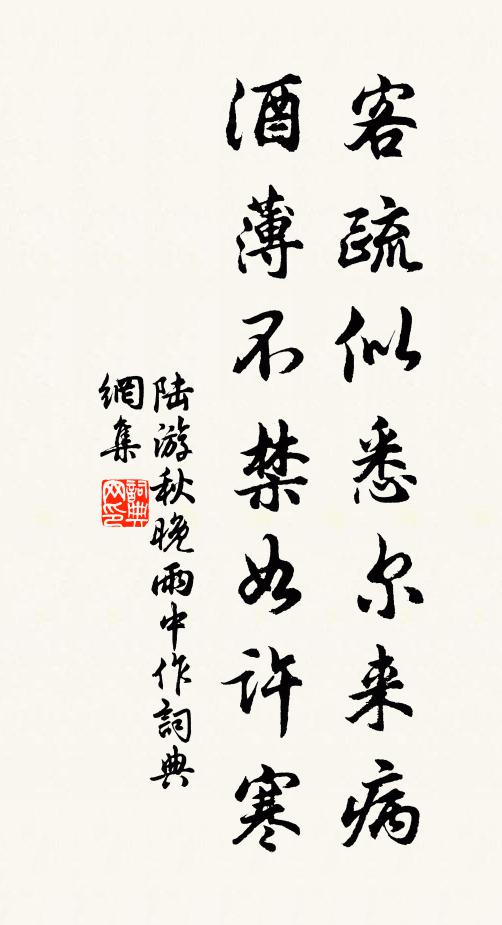 客疏似悉尔来病
酒薄不禁如许寒
陆游秋晚雨中作詞典
網集
詞典網印